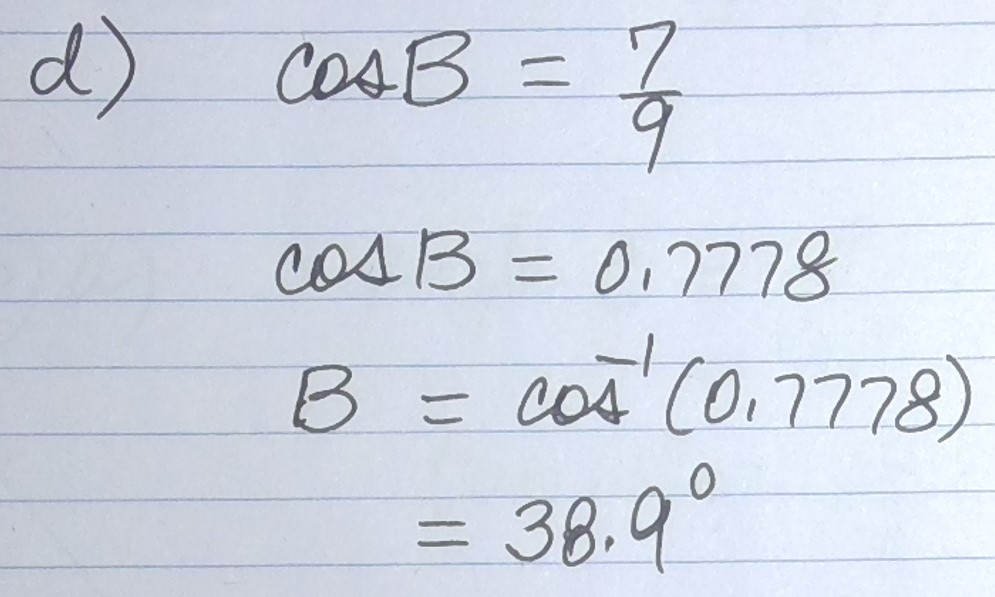 d) cosB = 7/9
cosB = 0.7778
B = cos⁻¹(0.7778)
= 38.9°